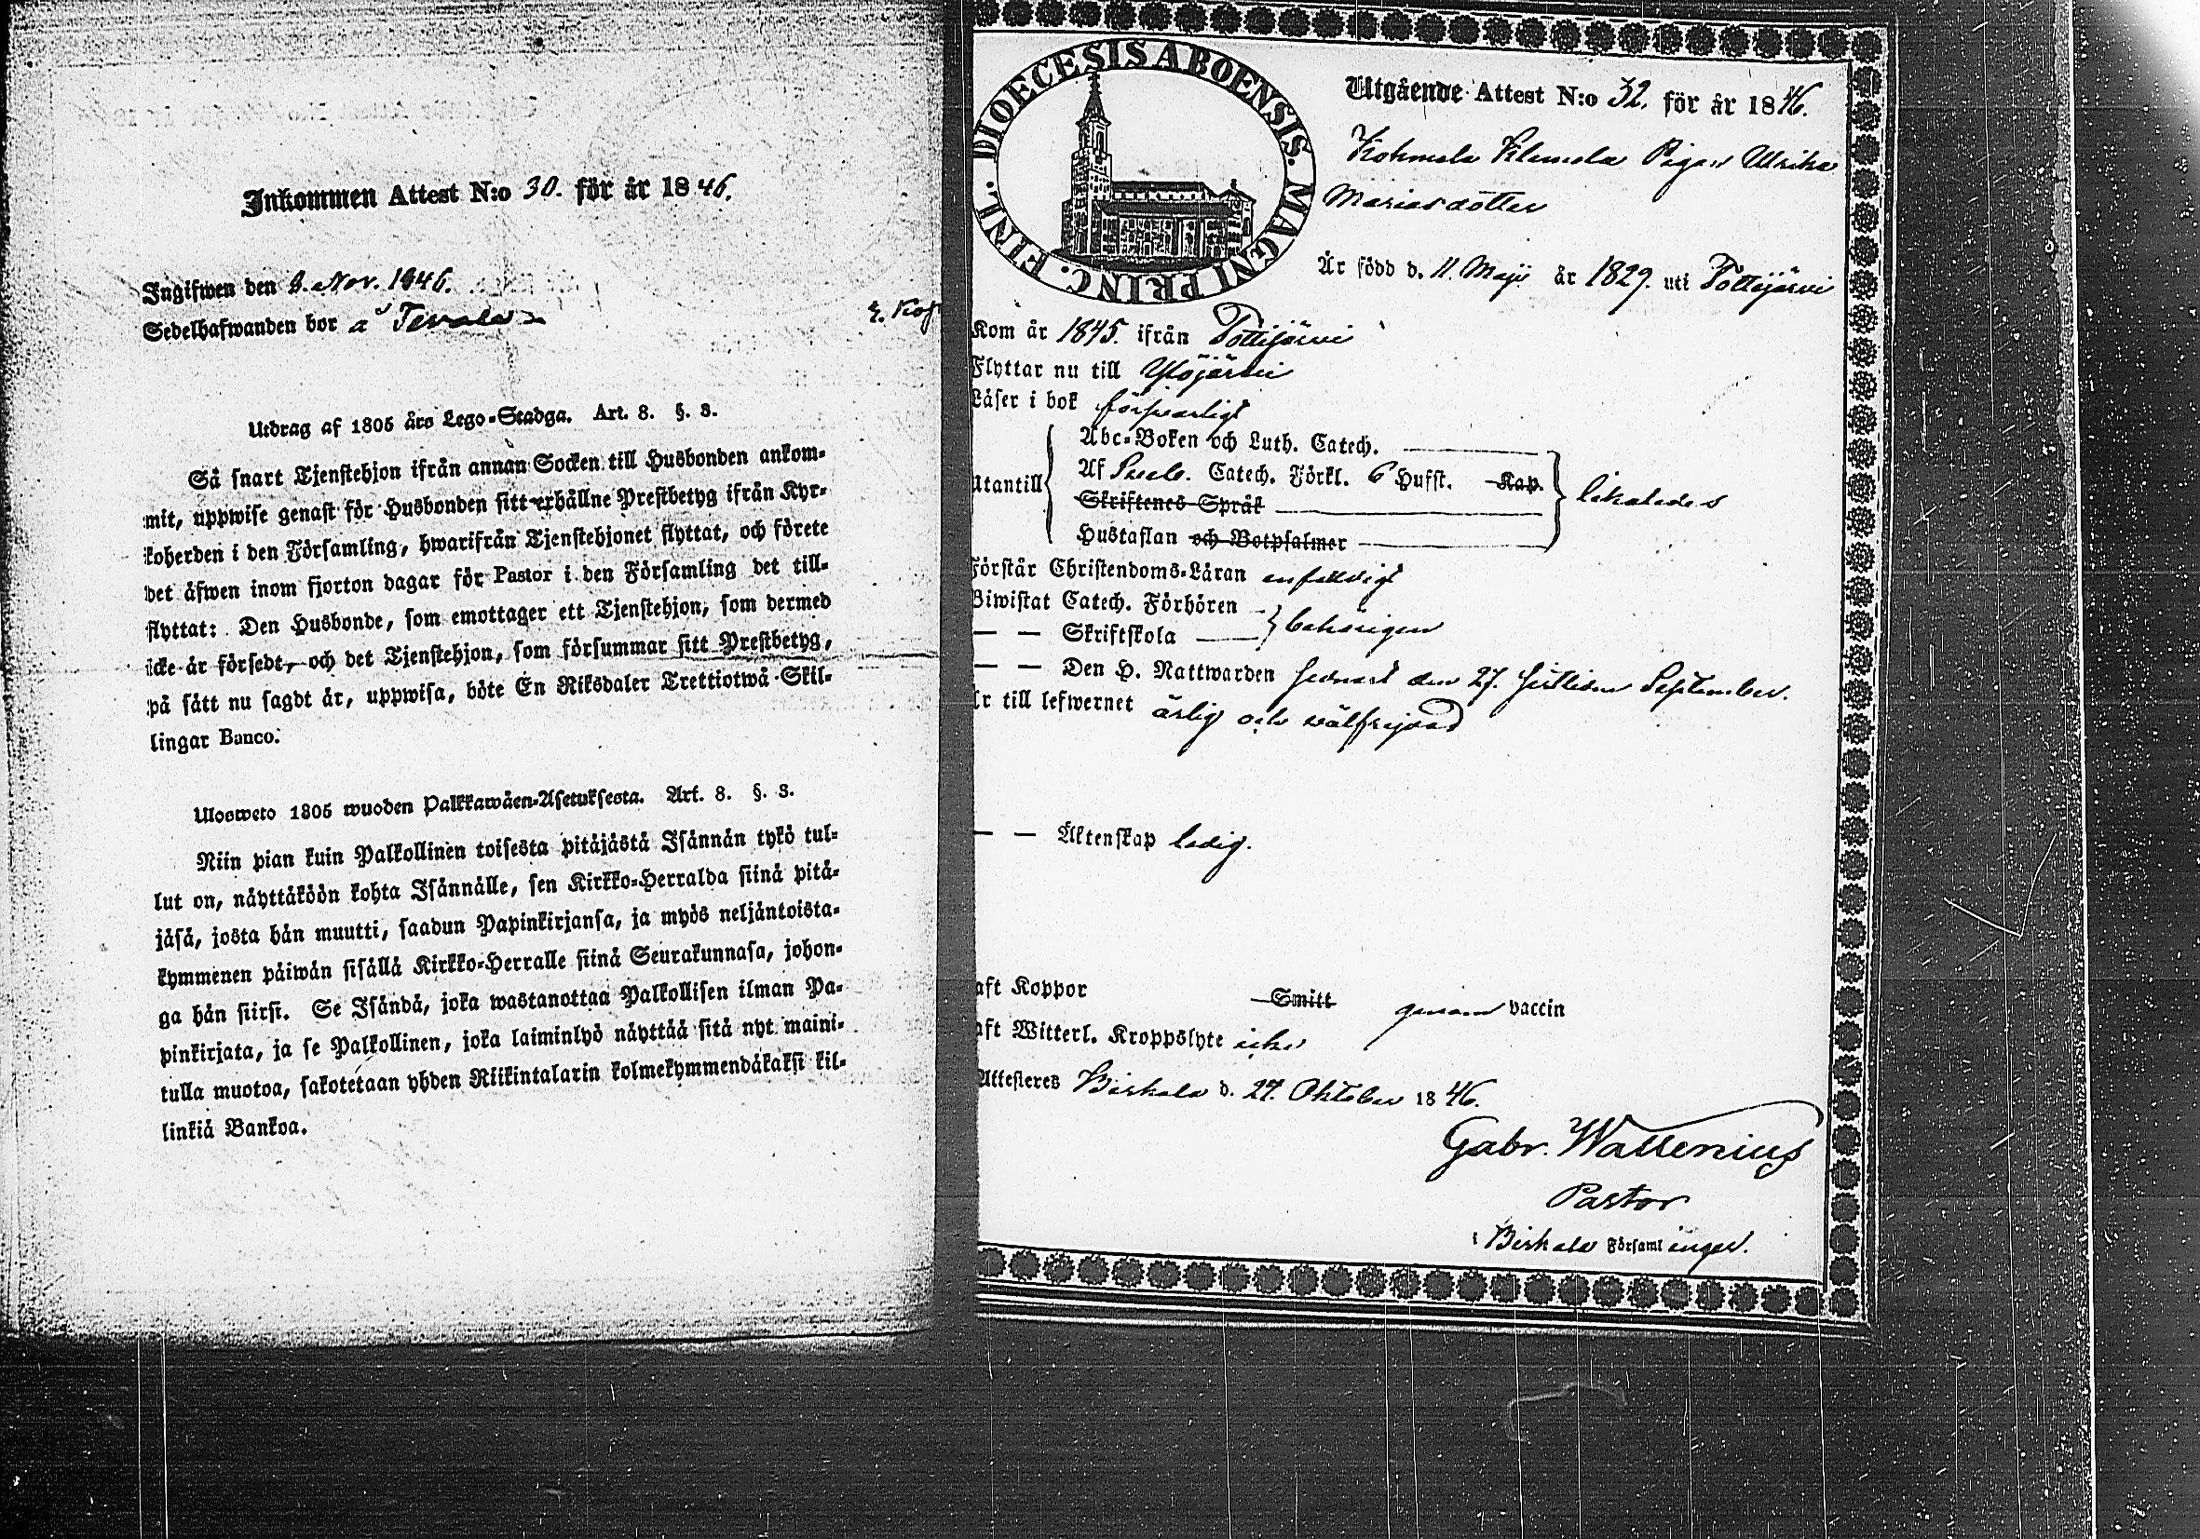 Inkommen Attest N:o 30. för år 1846.
Ingifwen den 8. Nov. 1846.
Sedelhafwanden bor å Tevala
Utdrag af 1805 års Lego-Stadga. Art. 8. §. 3.
Så snart Tjenstehjon ifrån annan Socken till Husbonden ankom-
mit, uppwise genast för Husbonden sitt erhållne Prestbetyg ifrån Kyr-
koherden i den Församling, hwarifrån Tjenstehjonet flyttat, och förete
det äfwen inom fjorton dagar för Pastor i den Församling det till-
flyttat: Den Husbonde, som emottager ett Tjenstehjon, som dermed
icke är försedt, och det Tjenstehjon, som försummar sitt Prestbetyg,
på sätt nu sagdt är, uppwisa, böte En Riksdaler Trettiotwå Skil-
lingar Banco.
Ulosweto 1805 wuoden Palkkawäen-Asetuksesta. Art. 8. §. 3.
Niin pian kuin Palkollinen toisesta pitäjästä Isännän tykö tul-
lut on, näyttäköön kohta Isännälle, sen Kirkko-Herralda siinä pitä-
jäsä, josta hän muutti, saadun Papinkirjansa, ja myös neljäntoista-
kymmenen päiwän sisällä Kirkko-Herralle siinä Seurakunnasa, johon-
ga hän siirsi. Se Isändä, joka wastanottaa Palkollisen ilman Pa-
pinkirjata, ja se Palkollinen, joka laiminlyö näyttää sitä nyt maini-
tulla muotoa, sakotetaan yhden Riikintalarin kolmekymmendäkaksi kil-
linkiä Bankoa.
DIOECESIS ABOENSIS. MAGNI PRINC. FINL.
Utgående Attest N:o 32. för år 1846.
Kohmala Klemola Pigan Ulrika
Mariasdotter
Är född d. 11. Maji år 1829. uti Tottijärvi
Kom år 1845. ifrån Tottijärvi
Flyttar nu till Ylöjärvi
Läser i bok försvarligt
Abc-Boken och Luth. Catech.
Utantill Af Sveb. Catech. Förkl. 6 Hufst. Kap. likaledes
Skriftenes Språk
Hustaflan och Botpsalmer
Förstår Christendoms-Läran enfaldigt
Biwistat Catech. Förhören
— — Skriftskola behörigen
— — Den H. Nattwarden senast den 27. sistliden September.
Är till lefwernet ärlig och välfrejdad
— — Äktenskap ledig.
aft Koppor Smitt genom vaccin
aft Witterl. Kroppslyte icke
Attesteres Birkala d. 27. Oktober 1846.
Gabr. Wallenius
Pastor
i Birkala Församlingar.